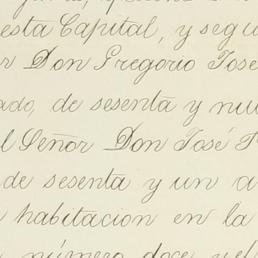 esta Capital, y segu
r Don Gregorio Jose
ado, de sesenta y nu
l Señor Don José F
de sesenta y un a
habitacion en la
número doce y el